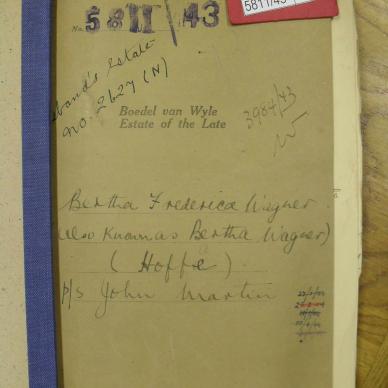 5811/43
No. 5811/43
husband's Estate
No. 2627 (N)
Boedel van Wyle
Estate of the Late
3984/43
Bertha Frederica Wagner
(also known as Bertha Wagner)
(Hoffe)
p/s John Martin